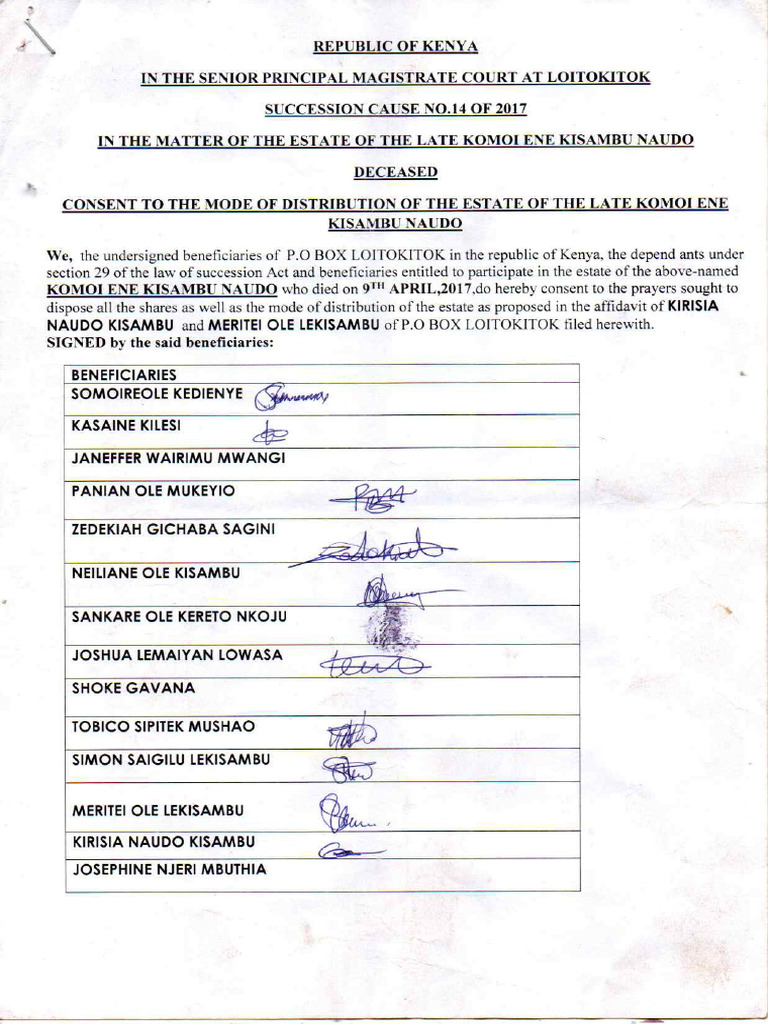 REPUBLIC OF KENYA
IN THE SENIOR PRINCIPAL MAGISTRATE COURT AT LOITOKITOK
SUCCESSION CAUSE NO.14 OF 2017
IN THE MATTER OF THE ESTATE OF THE LATE KOMOI ENE KISAMBU NAUDO
DECEASED
CONSENT TO THE MODE OF DISTRIBUTION OF THE ESTATE OF THE LATE KOMOI ENE
KISAMBU NAUDO
We, the undersigned beneficiaries of P.O BOX LOITOKITOK in the republic of Kenya, the depend ants under
section 29 of the law of succession Act and beneficiaries entitled to participate in the estate of the above-named
KOMOI ENE KISAMBU NAUDO who died on 9TH APRIL,2017,do hereby consent to the prayers sought to
dispose all the shares as well as the mode of distribution of the estate as proposed in the affidavit of KIRISIA
NAUDO KISAMBU and MERITEI OLE LEKISAMBU of P.O BOX LOITOKITOK filed herewith.
SIGNED by the said beneficiaries:
BENEFICIARIES
SOMOIREOLE KEDIENYE
KASAINE KILESI
JANEFFER WAIRIMU MWANGI
PANIAN OLE MUKEYIO
ZEDEKIAH GICHABA SAGINI
NEILIANE OLE KISAMBU
SANKARE OLE KERETO NKOJU
JOSHUA LEMAIYAN LOWASA
SHOKE GAVANA
TOBICO SIPITEK MUSHAO
SIMON SAIGILU LEKISAMBU
MERITEI OLE LEKISAMBU
KIRISIA NAUDO KISAMBU
JOSEPHINE NJERI MBUTHIA